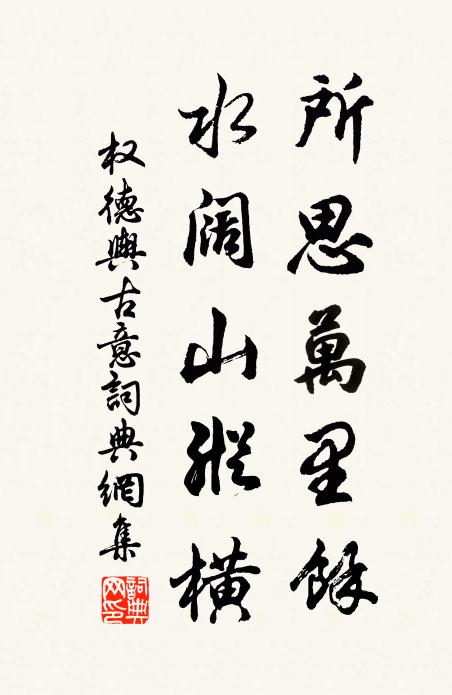 所思萬里餘
水阔山縱橫
权德輿古意詞典網集
詞典網印